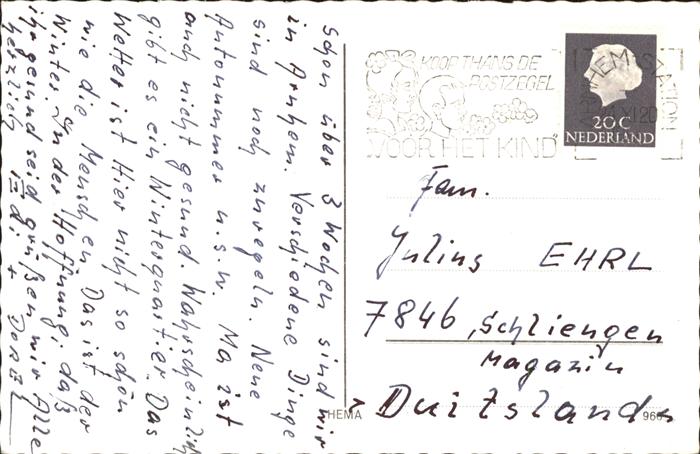 Schon über 3 Wochen sind wir
in Arnhem. Verschiedene Dinge
sind noch zuregeln. Neue
Autonummer u.s.w. Ma ist
auch nicht gesund. Wahrscheinlich
gibt es ein Winterquartier. Das
Wetter ist Hier nicht so schön
wie die Menschen Das ist der
Winter. In der Hoffnung, daß
ihr gesund seid grüßen wir Alle
herzlich
KOOP THANS DE
POSTZEGEL
"VOOR HET KIND"
ARNHEM-STATION
20 C
NEDERLAND
Fam.
Julius EHRL
7846, Schliengen
Magazin
Duitsland
HEMA